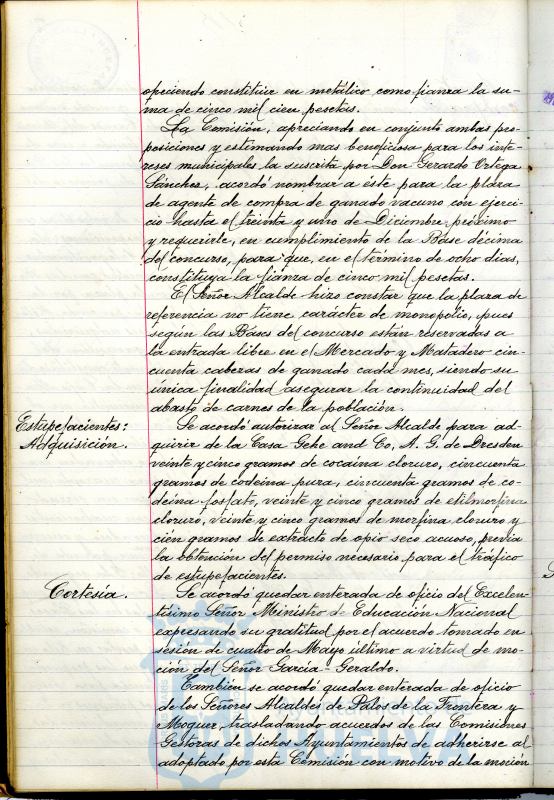 ofreciendo constituir en metálico como fianza la su-
ma de cinco mil cien pesetas.
La Comisión, apreciando en conjunto ambas pro-
posiciones y estimando mas beneficiosa para los inte-
reses municipales la suscrita por Don Gerardo Ortega
Sánchez, acordó nombrar a éste para la plaza
de agente de compra de ganado vacuno con ejerci-
cio hasta el treinta y uno de Diciembre próximo
y requerirle, en cumplimiento de la Base décima
del concurso, para que, en el término de ocho dias,
constituya la fianza de cinco mil pesetas.
El Señor Alcalde hizo constar que la plaza de
referencia no tiene carácter de monopolio, pues
según las Bases del concurso están reservadas a
la entrada libre en el Mercado y Matadero cin-
cuenta cabezas de ganado cada mes, siendo su
única finalidad asegurar la continuidad del
abasto de carnes de la población.
Estupefacientes:
Adquisición.
Se acordó autorizar al Señor Alcalde para ad-
quirir de la Casa Gehe and Co, A. G. de Dresden
veinte y cinco gramos de cocaina cloruro, cincuenta
gramos de codeina pura, cincuenta gramos de co-
deina fosfato, veinte y cinco gramos de etilmorfina
cloruro, veinte y cinco gramos de morfina cloruro y
cien gramos de extracto de opio seco acuoso, previa
la obtención del permiso necesario para el tráfico
de estupefacientes.
Cortesía.
Se acordó quedar enterada de oficio del Excelen-
tísimo Señor Ministro de Educación Nacional
expresando su gratitud por el acuerdo tomado en
sesión de cuatro de Mayo último a virtud de mo-
ción del Señor García-Geraldo.
También se acordó quedar enterada de oficio
de los Señores Alcaldes de Palos de la Frontera y
Moguer, trasladando acuerdos de las Comisiones
Gestoras de dichos Ayuntamientos de adherirse al
adoptado por esta Comisión con motivo de la moción